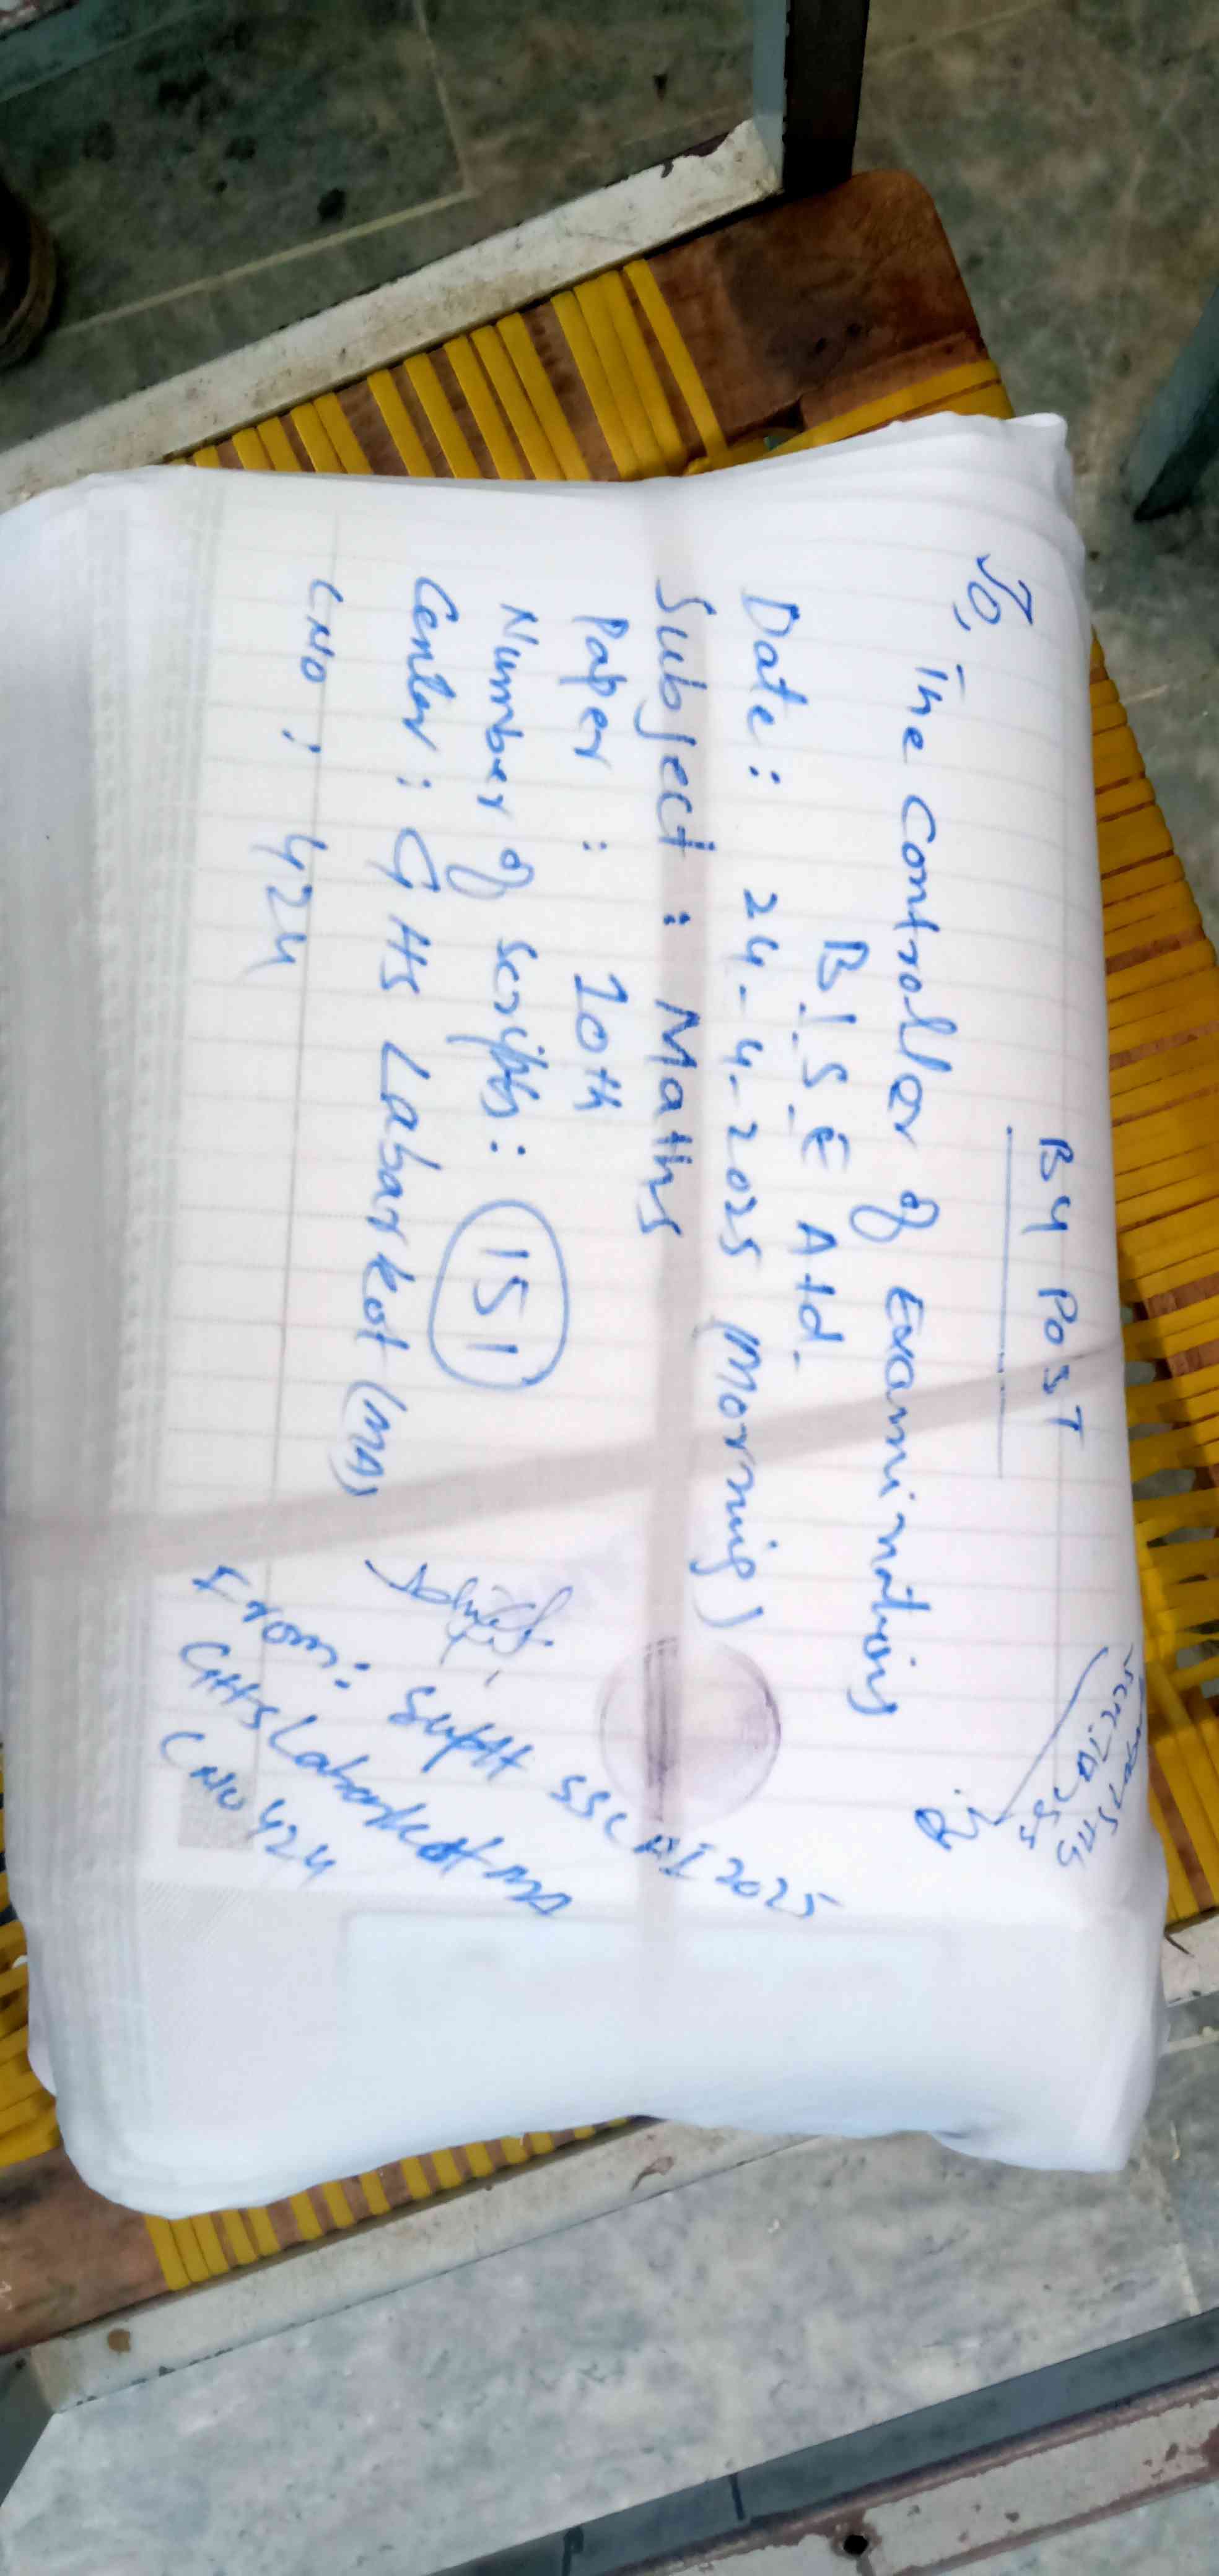 By Post
To,
The Controller of Examinations
B.I.S.E Atd.
Date: 24-4-2025 (Morning)
Subject: Maths
Paper : 10th
Number of scripts: 151
Center: GHS Labarkot (MA)
CNO: 424
From: Supdt SSC AI 2025
GHS Labarkot MA
CNO 424
SSC AI 2025
GHS Labarkot